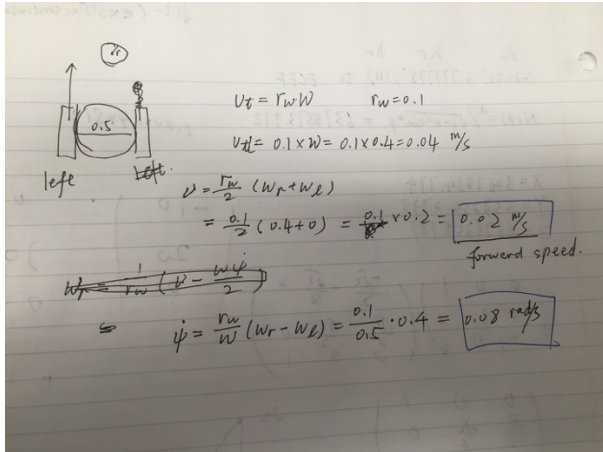 0.5
left
Left.
Vt = rw W    rw = 0.1
Vtl = 0.1 × W = 0.1 × 0.4 = 0.04 m/s
ν = rw/2 (Wr + Wl)
= 0.1/2 (0.4 + 0) = 0.1 × 0.2 = 0.02 m/s
forward speed.
Wr = 1/rw (ν − Wψ̇/2)
ψ̇ = rw/W (Wr − Wl) = 0.1/0.5 · 0.4 = 0.08 rad/s